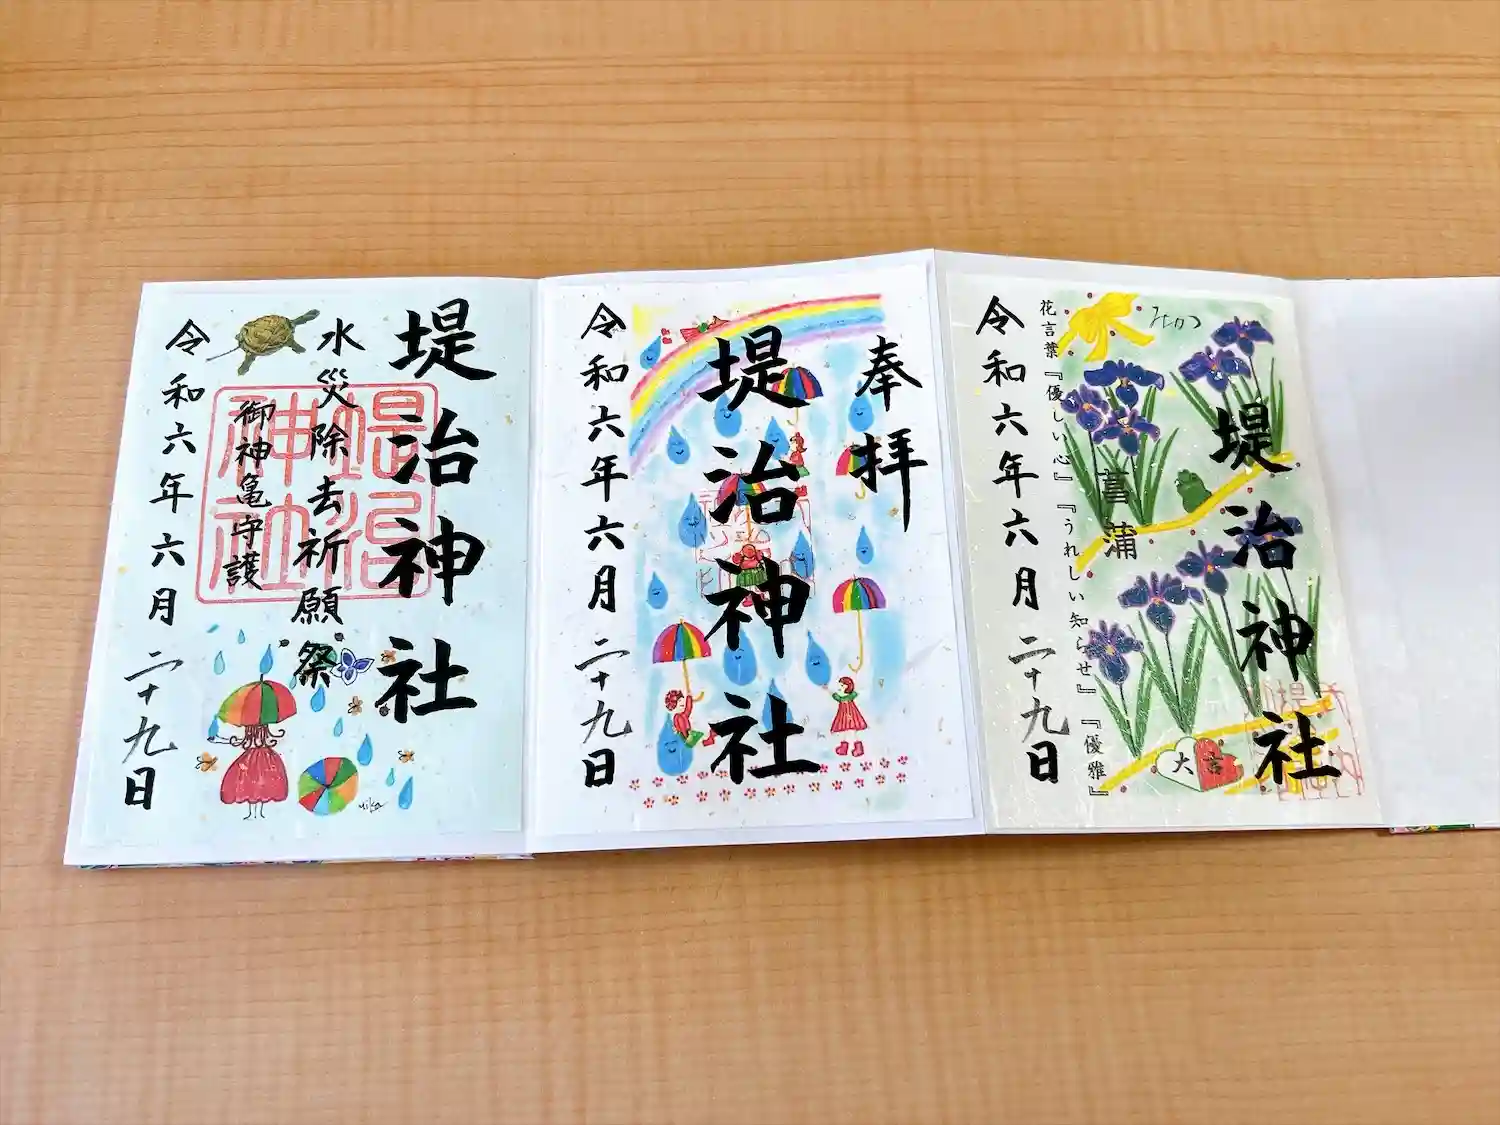 堤治神社
水災除去祈願祭
御神亀守護
堤治神社
令和六年六月二十九日
yika
奉拝
堤治神社
令和六年六月二十九日
堤治神社
菖蒲
花言葉『優しい心』『うれしい知らせ』『優雅』
令和六年六月二十九日
大吉